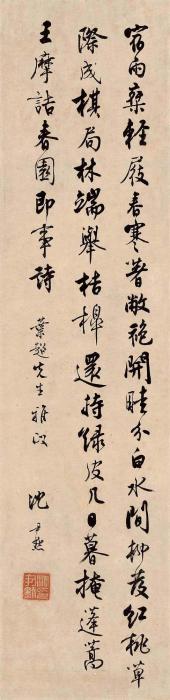 宿雨乘輕屐春寒著敝袍開畦分白水間柳發紅桃草
際成棋局林端舉桔槹還持綠皮几日暮掩蓬蒿
王摩詰春園即事詩
葉先生雅政
沈尹默